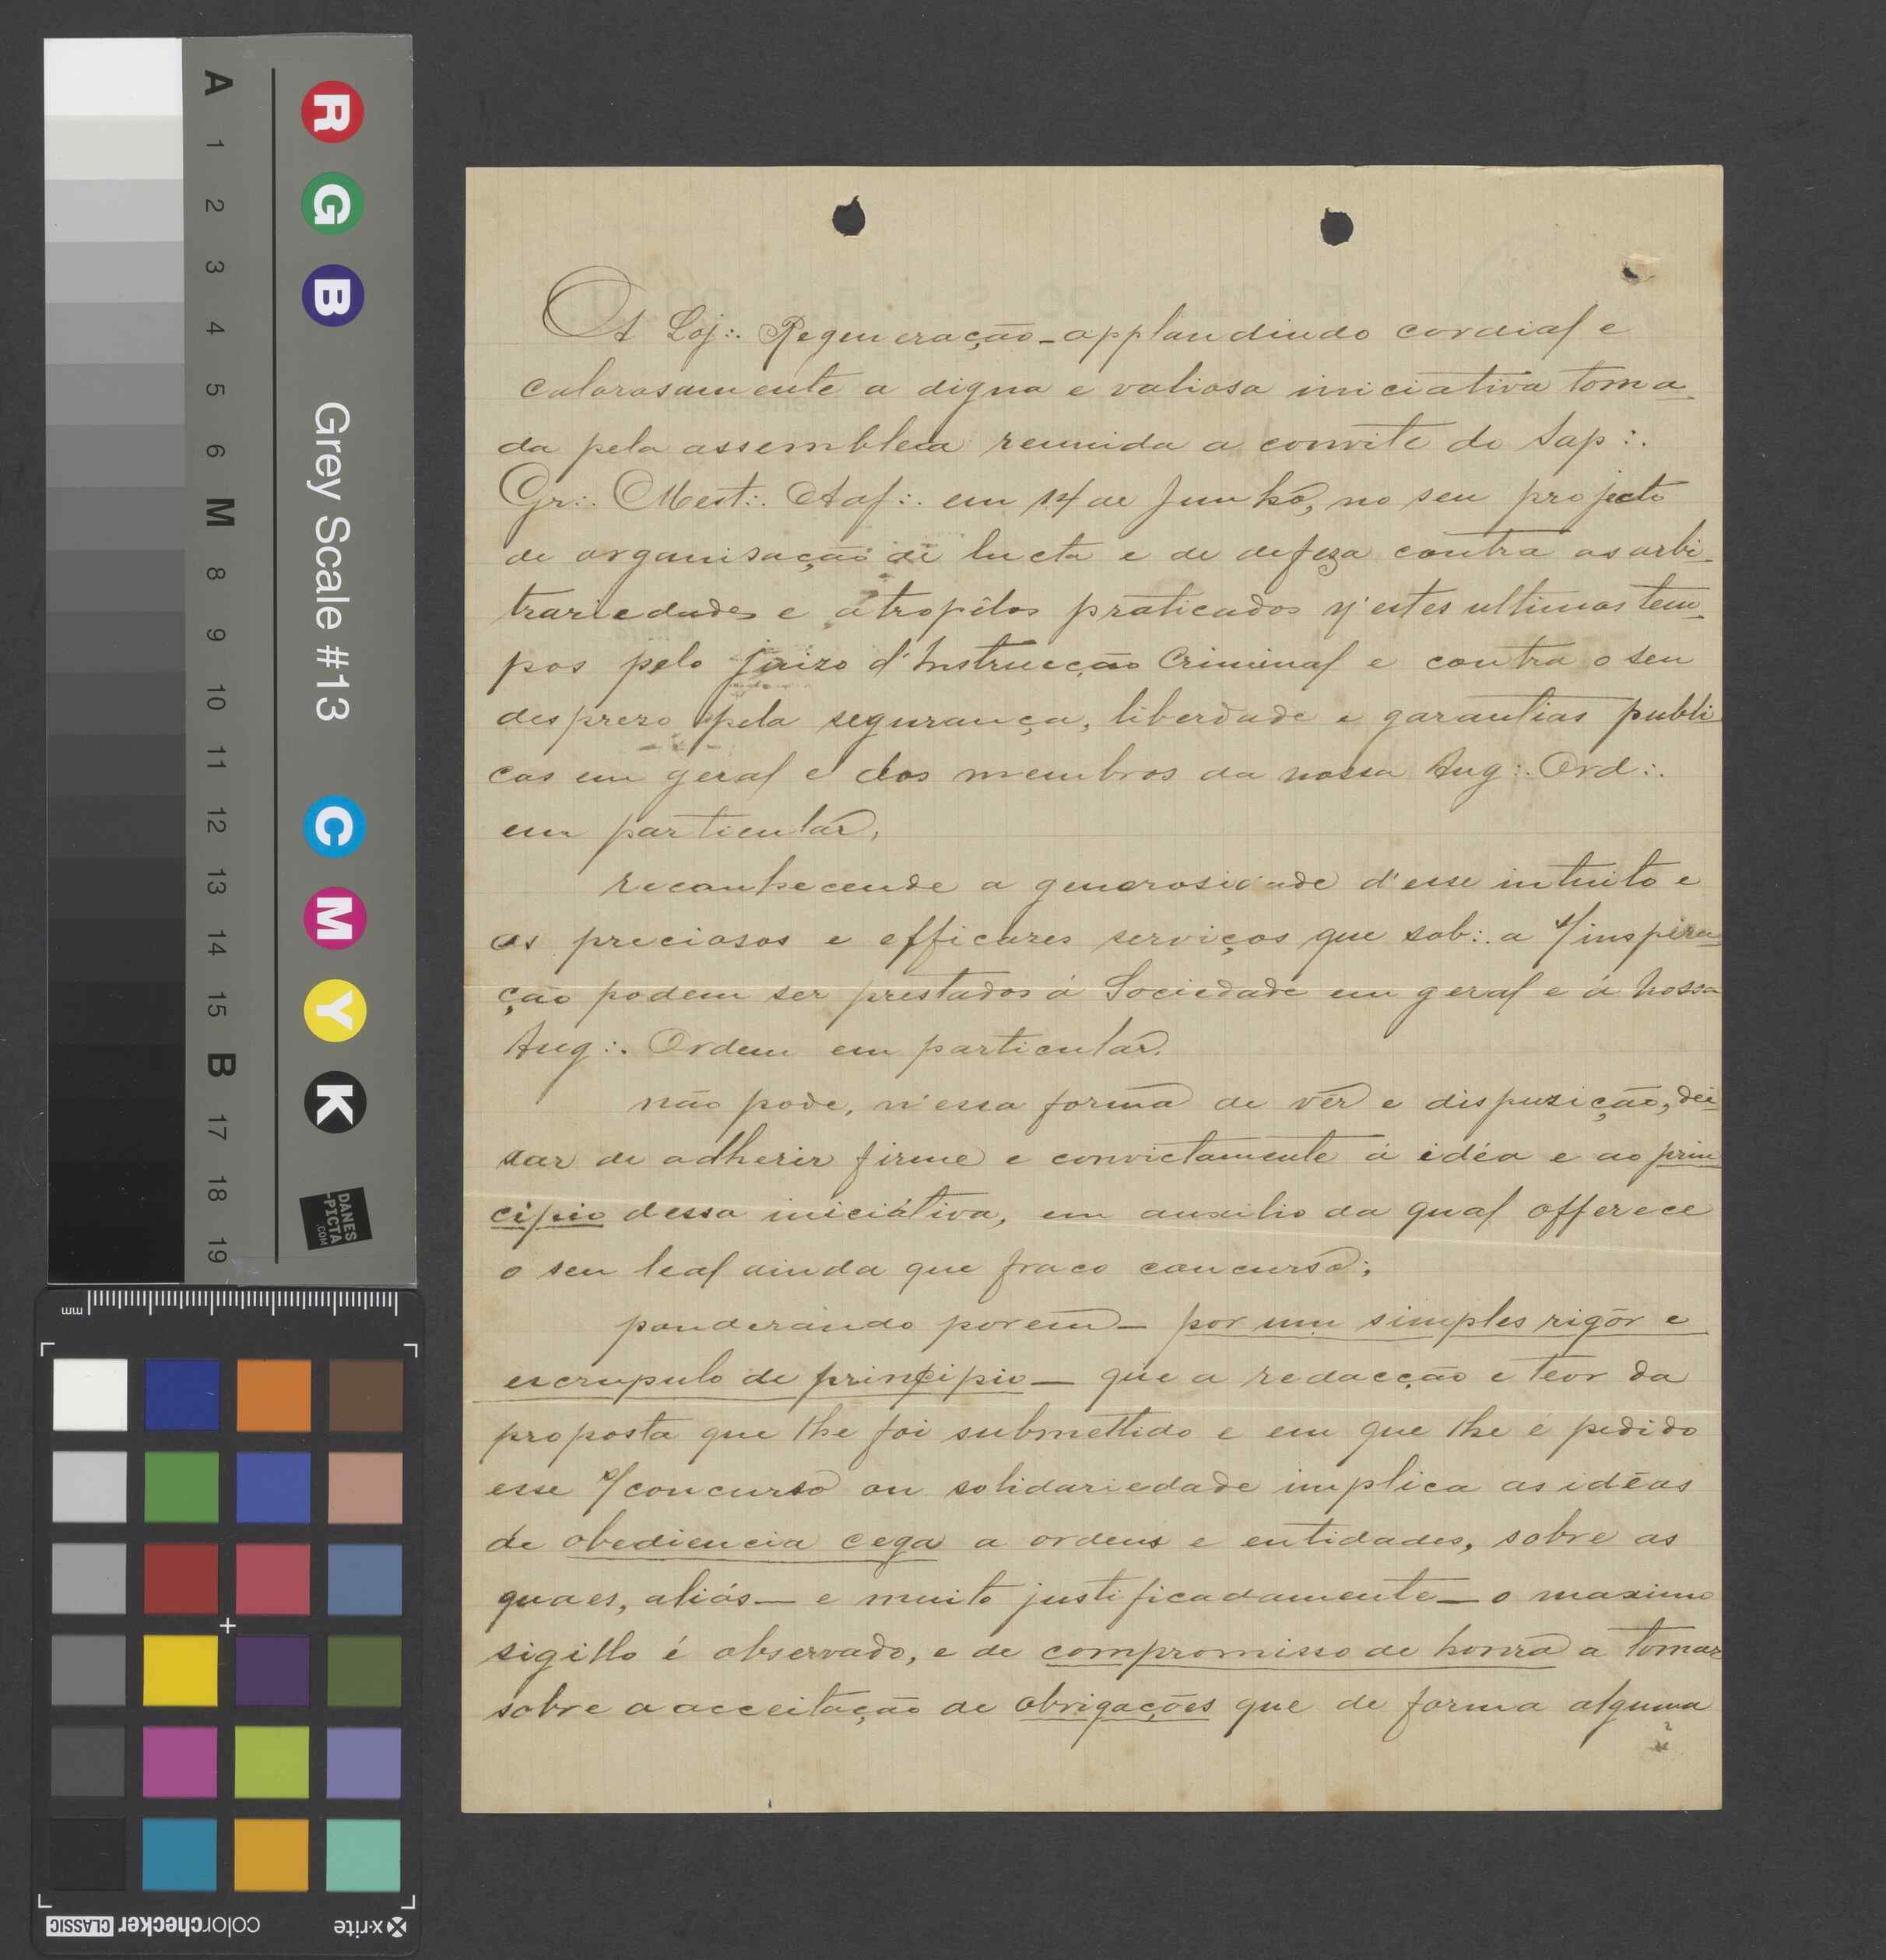 A Loj∴ Regeneração_applaudindo cordial e
calorosamente a digna e valiosa iniciativa toma_
da pela assembleia reunida a convite do Sap∴
Gr∴ Mest∴ Adj∴ em 14 de Junho, no seu projecto
de organisação de lucta e de defeza contra as arbi_
trariedades e atropêlos praticados n'estes ultimos tem_
pos pelo juizo d'Instrucção Criminal e contra o seu
desprezo pela segurança, liberdade e garantias publi
cas em geral e dos membros da nossa Aug∴ Ord∴
em particular,
reconhecendo a generosidade d'esse intuito e
os preciosos e efficazes serviços que sob∴ a s/inspira_
ção podem ser prestados á Sociedade em geral e á nossa
Aug∴ Ordem em particular.
não pode, n'essa forma de vêr e dispuzição, dei_
xar de adherir firme e convictamente á idéa e ao prin
cipio dessa iniciátiva, em auxilio da qual offerece
o seu leal ainda que fraco concurso;
ponderando porem_ por um simples rigôr e
escrupulo de principio_ que a redacção e teor da
proposta que lhe foi submettido e em que lhe é pedido
esse s/concurso ou solidariedade implica as idéas
de obediencia cega a ordens e entidades, sobre as
quaes, aliás_ e muito justificadamente_ o maximo
sigillo é observado, e de compromisso de honra a tomar
sobre a acceitação de obrigações que de forma alguma
A
1
2
3
4
5
6
M
8
9
10
11
12
13
14
15
B
17
18
19
R
G
B
Grey Scale #13
C
M
Y
K
DANES
-PICTA
.COM
mm
x·rite
colorchecker CLASSIC